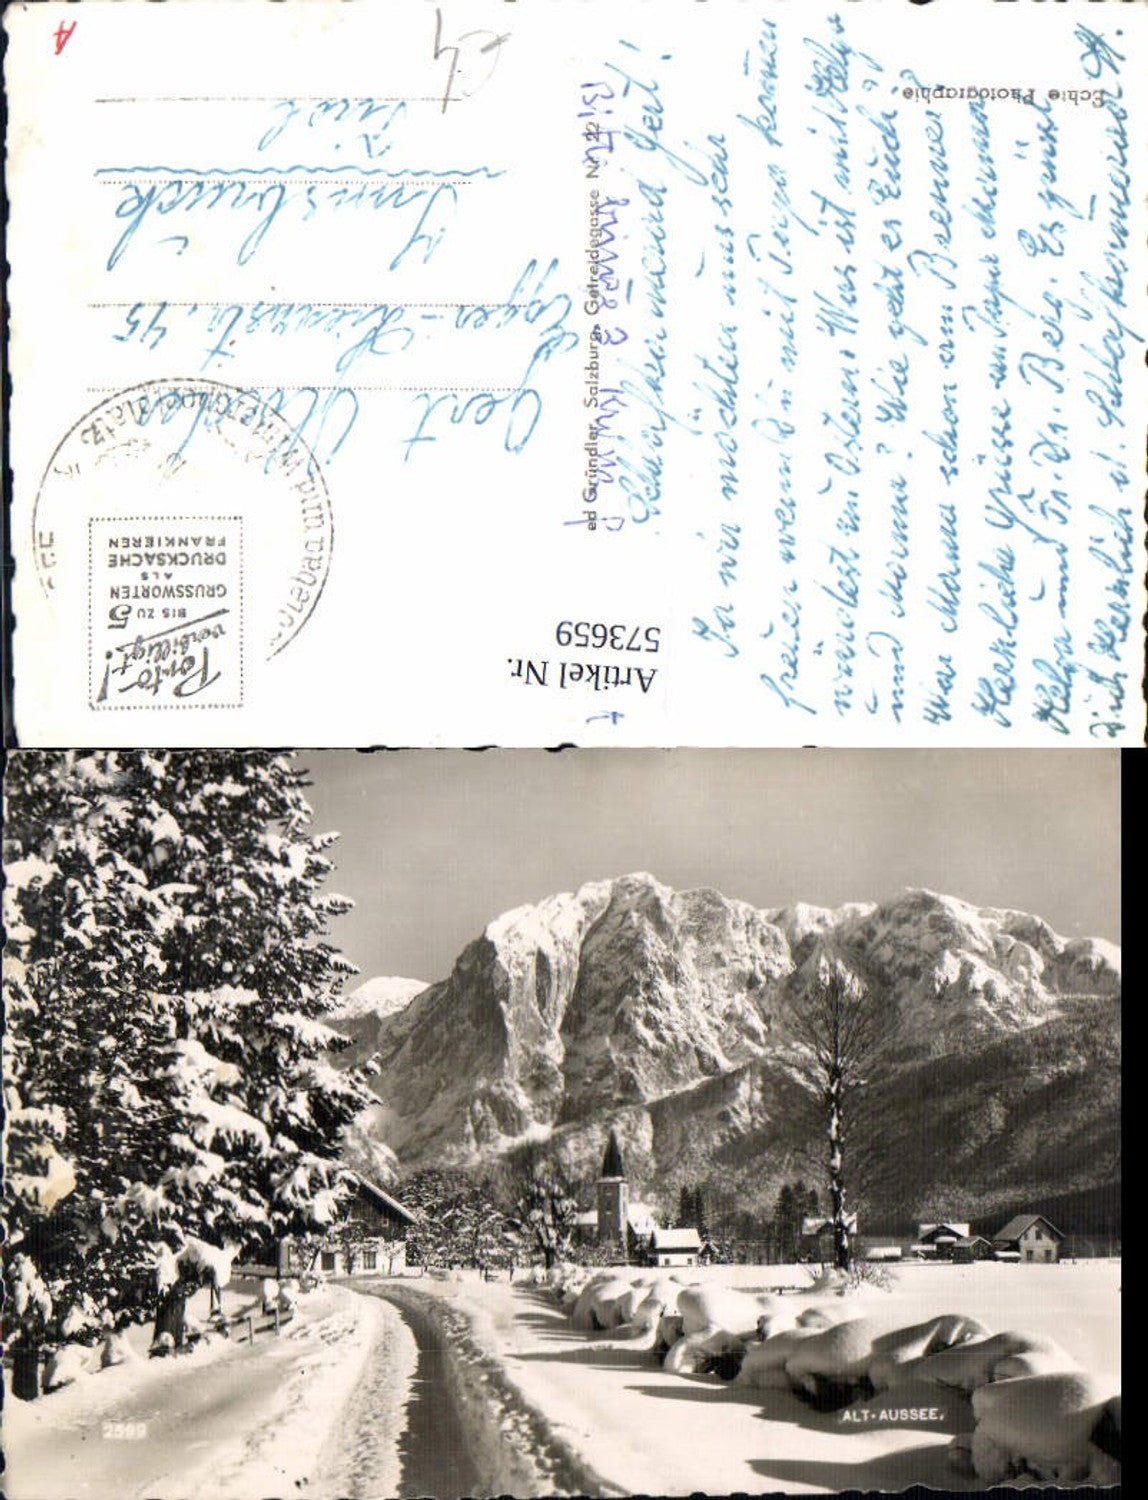 Lieber und Gert!
Ja wir möchten uns sehr
freuen wenn Du mit Papa kommen
würdest zu Ostern. Was ist mit Helga
und ? Wie geht es Euch?
War Mama schon am Brenner
Herzliche Grüsse an Papa Mama
Helga und Fr. Dr. Berg. Es grüsst
Dich herzlich
Echte Photographie
ed Gründler, Salzburg, Getreidegasse Nr. 22
Bitte
Gert
Egger-Lienzstr. 45
Innsbruck
Tirol
A
Porto-
verbilligt!
BIS ZU 5
GRUSSWORTEN
ALS
DRUCKSACHE
FRANKIEREN
und Wintersportplatz
Artikel Nr.
573659
2599
ALT-AUSSEE,